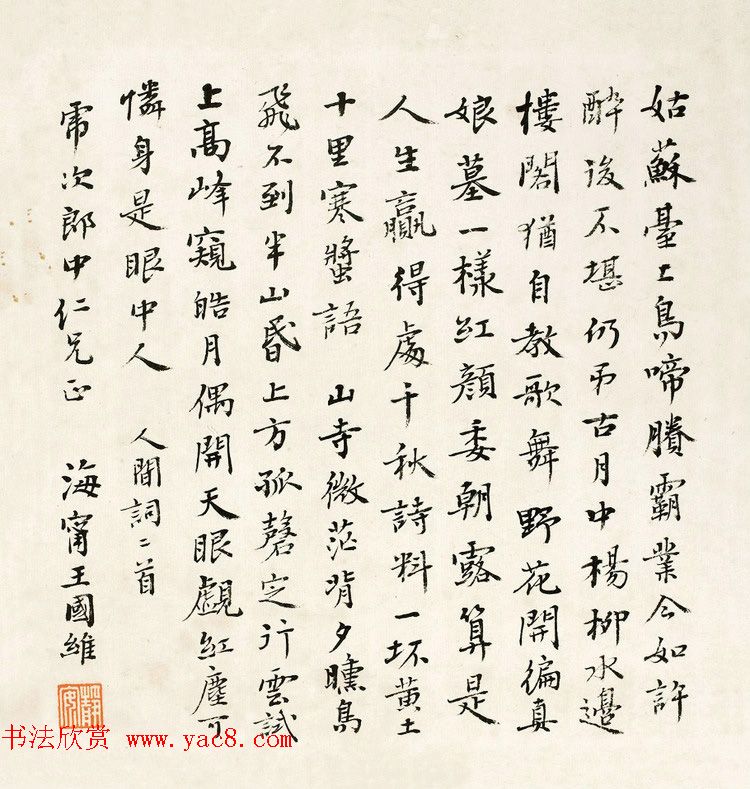 姑蘇臺上烏啼賸霸業今如許
醉後不堪仍弔古月中楊柳水邊
樓閣猶自教歌舞野花開徧真
娘墓一樣紅顏委朝露算是
人生贏得處千秋詩料一坏黄土
十里寒螿語 山寺微茫背夕曛鳥
飛不到半山昏上方孤磬定行雲試
上高峰窺皓月偶開天眼覷紅塵可
憐身是眼中人 人間詞二首
帍次郎中仁兄正 海甯王國維
靜安
书法欣赏 www.yac8.com